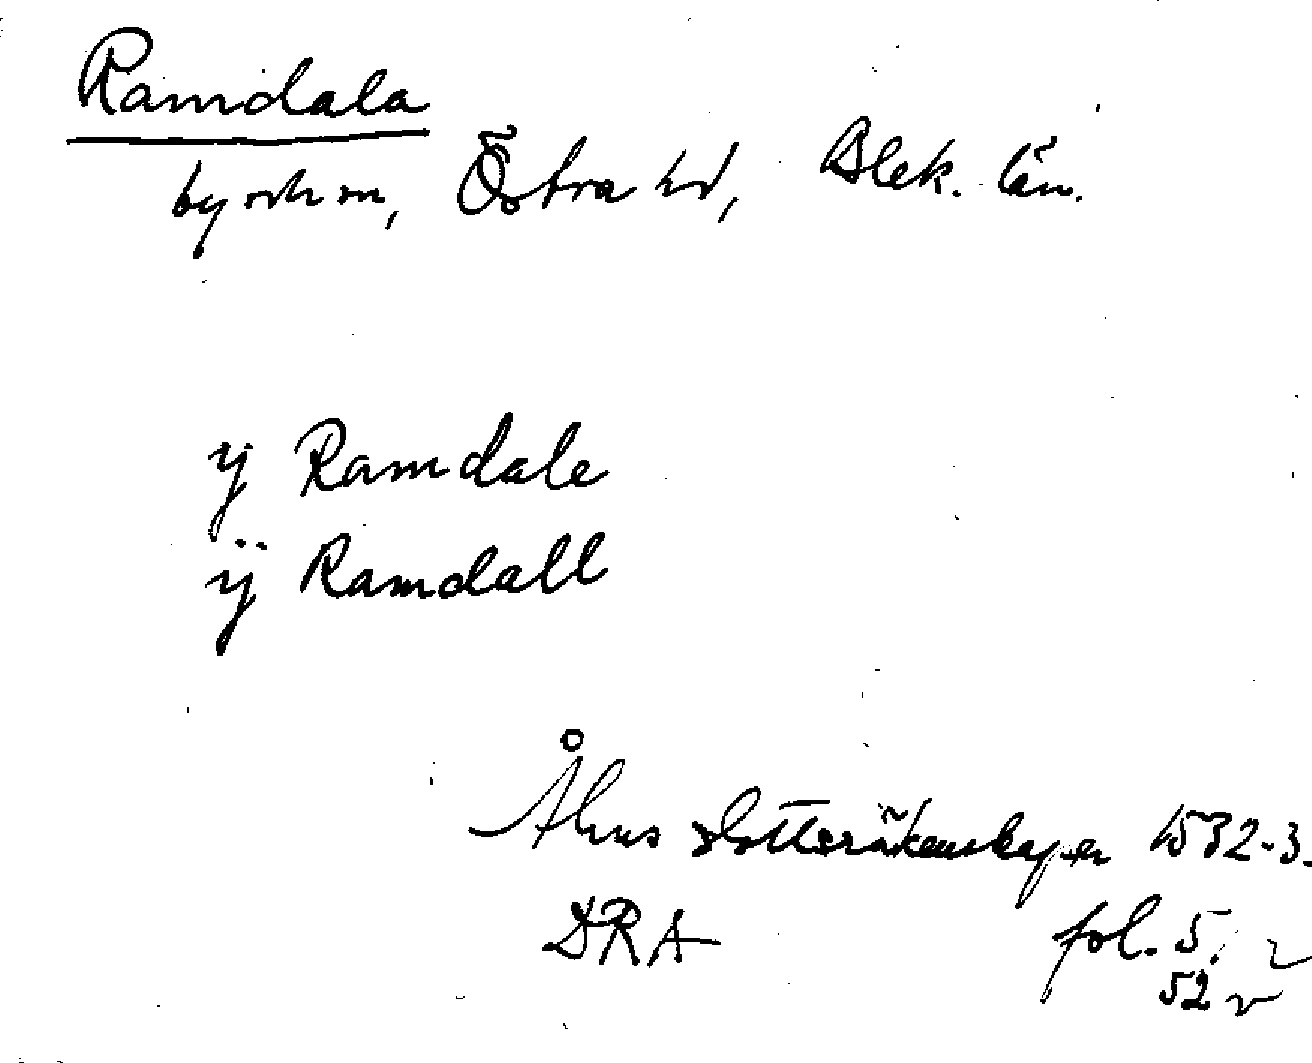 Ramdala
by och sn, Östra hd, Blek. län.
ij Ramdale
ÿ Ramdall
Åhus slottsräkenskaper 1532-3.
DRA fol. 5 v
52 v